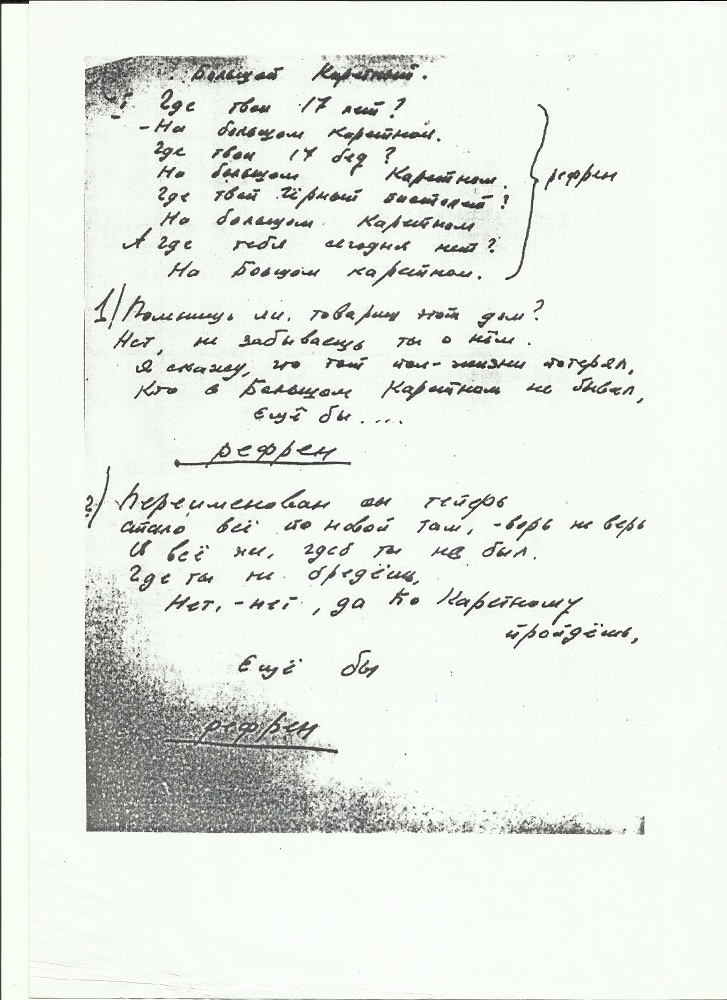 Большой Каретный.
Где твои 17 лет?
- На большом каретном.
Где твои 17 бед?
На большом Каретном.
Где твой чёрный пистолет?
На большом Каретном
А где тебя сегодня нет?
На Боьщом каретном.
рефрен
1) Помнишь ли, товарищ этот дом?
Нет, не забываешь ты о нём.
Я скажу, что тот пол-жизни потерял,
Кто в Большом Каретном не бывал,
Ещё бы....
рефрен
2) Переименован он теперь
стало всё по новой там, -верь не верь
И всё же, где б ты не был.
Где ты не бредёшь,
Нет, -нет, да по Каретному
пройдёшь,
Ещё бы
рефрен